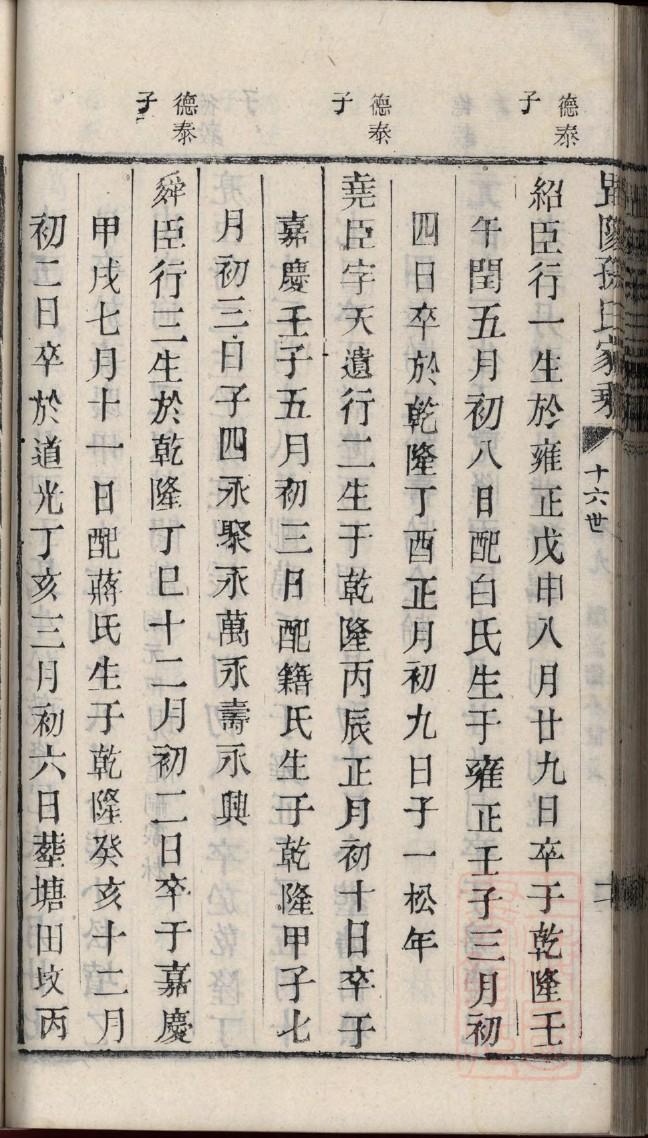 毘陵孫氏家乘
十六世
德泰
子
紹臣行一生於雍正戊申八月廿九日卒于乾隆壬
午閏五月初八日配白氏生于雍正壬子三月初
四日卒於乾隆丁酉正月初九日子一松年
德泰
子
堯臣字天遺行二生于乾隆丙辰正月初十日卒于
嘉慶壬子五月初三日配籍氏生于乾隆甲子七
月初三日子四永聚永萬永壽永興
德泰
子
舜臣行三生於乾隆丁巳十二月初二日卒于嘉慶
甲戌七月十一日配蔣氏生于乾隆癸亥十二月
初二日卒於道光丁亥三月初六日塟塘田坟丙